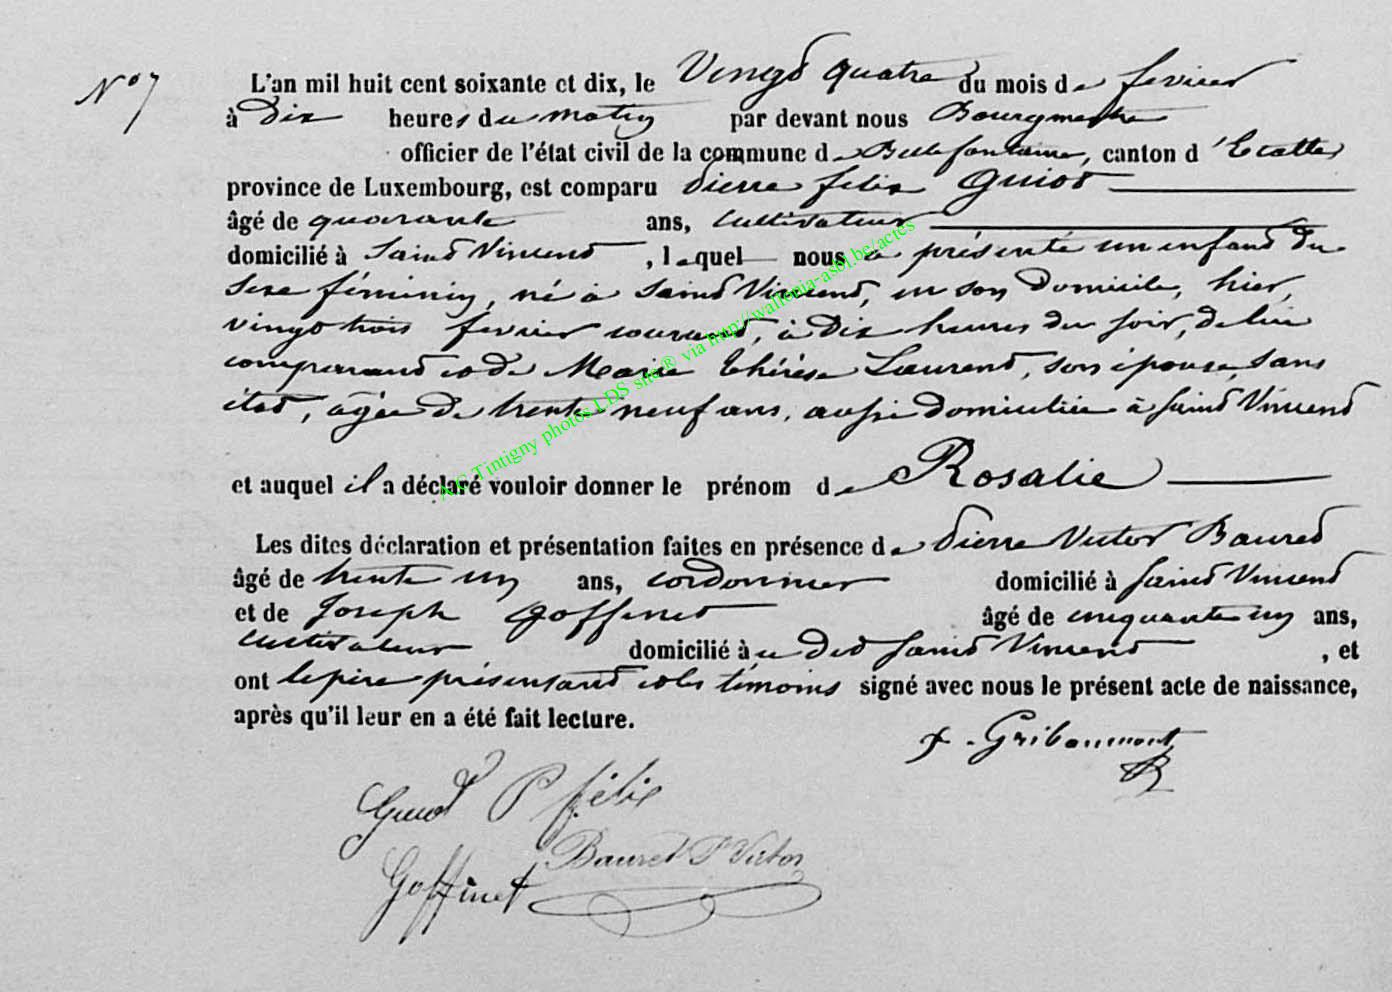 N° 7
L'an mil huit cent soixante et dix, le Vingt quatre du mois de fevrier
à Dix heures du matin par devant nous Bourgmestre
officier de l'état civil de la commune de Bellefontaine, canton d'Etalle
province de Luxembourg, est comparu Pierre felix Guiot
âgé de quarante ans, cultivateur
domicilié à Saint Vincent, lequel nous a présenté un enfant du
sexe féminin, né à Saint Vincent, en son domicile, hier,
vingt trois fevrier courant, à dix heures du soir, de lui
comparant et de Marie Thérèse Laurent, son épouse, sans
état, âgée de trente neuf ans, aussi domiciliée à Saint Vincent
et auquel il a déclaré vouloir donner le prénom de Rosalie
Les dites déclaration et présentation faites en présence de Pierre Victor Bauret
âgé de trente un ans, cordonnier domicilié à Saint Vincent
et de Joseph Goffinet âgé de cinquante un ans,
cultivateur domicilié à u dit Saint Vincent, et
ont le père présentant et les témoins signé avec nous le présent acte de naissance,
après qu'il leur en a été fait lecture.
Gribaumont
Guiot P félix
Bauret P Victor
Goffinet
AG Tintigny photos LDS site® via http://wallonia-asbl.be/actes